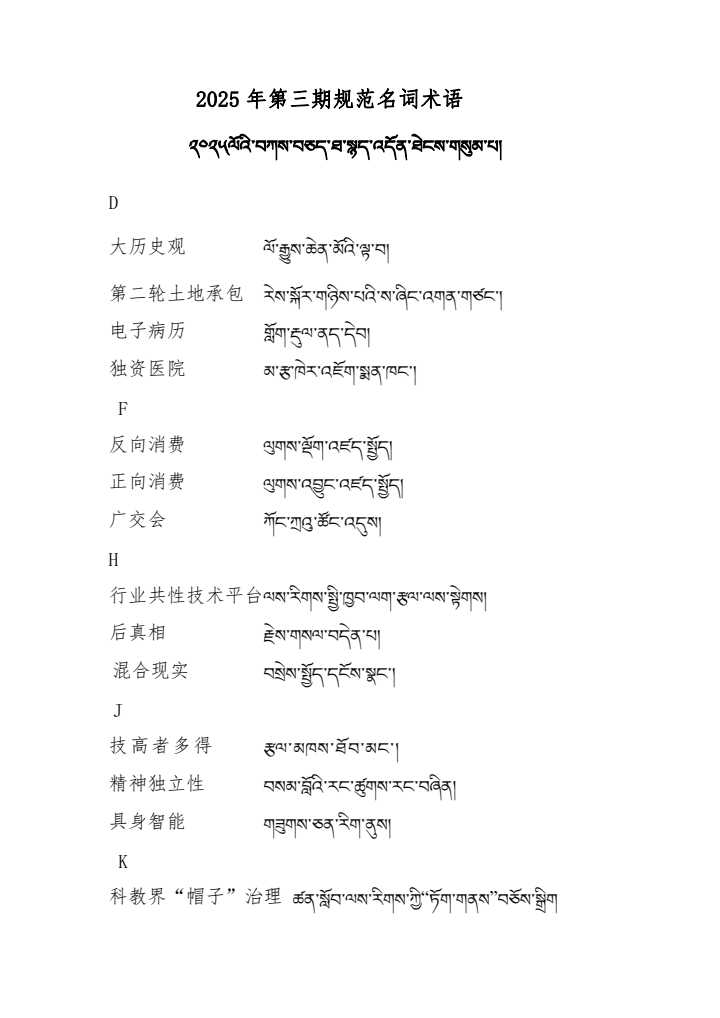 2025 年第三期规范名词术语
༢༠༢༥ལོའི་བཀས་བཅད་ཐ་སྙད་འདོན་ཐེངས་གསུམ་པ།
D
大历史观 ལོ་རྒྱུས་ཆེན་མོའི་ལྟ་བ།
第二轮土地承包 རེས་སྐོར་གཉིས་པའི་ས་ཞིང་འགན་གཙང་།
电子病历 གློག་རྡུལ་ནད་དེབ།
独资医院 མ་རྩ་ཁེར་འཇོག་སྨན་ཁང་།
F
反向消费 ལུགས་ལྡོག་འཛད་སྤྱོད།
正向消费 ལུགས་འབྱུང་འཛད་སྤྱོད།
广交会 ཀོང་ཀྲའུ་ཚོང་འདུས།
H
行业共性技术平台 ལས་རིགས་སྤྱི་ཁྱབ་ལག་རྩལ་ལས་སྟེགས།
后真相 རྗེས་གསལ་བདེན་པ།
混合现实 བསྲེས་སྤྱོད་དངོས་སྣང་།
J
技高者多得 རྩལ་མཁས་ཐོབ་མང་།
精神独立性 བསམ་བློའི་རང་ཚུགས་རང་བཞིན།
具身智能 གཟུགས་ཅན་རིག་ནུས།
K
科教界“帽子”治理 ཚན་སློབ་ལས་རིགས་ཀྱི“ཏོག་གནས”བཅོས་སྒྲིག